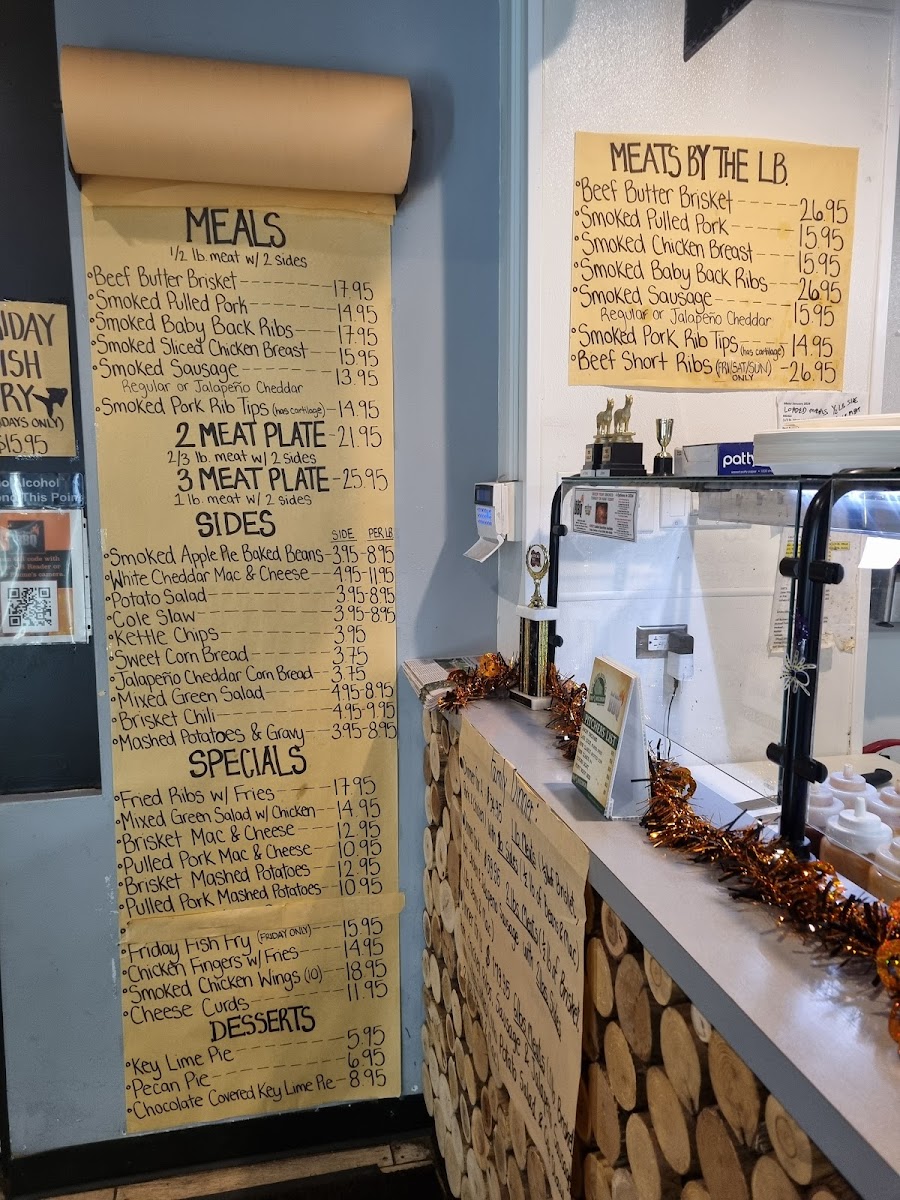 MEALS
1/2 lb. meat w/ 2 sides
Beef Butter Brisket 17.95
Smoked Pulled Pork 14.95
Smoked Baby Back Ribs 17.95
Smoked Sliced Chicken Breast 15.95
Smoked Sausage 13.95
Regular or Jalapeño Cheddar
Smoked Pork Rib Tips (has cartilage) 14.95
2 MEAT PLATE 21.95
2/3 lb. meat w/ 2 sides
3 MEAT PLATE 25.95
1 lb. meat w/ 2 sides
SIDES
SIDE PER LB
Smoked Apple Pie Baked Beans 3.95 - 8.95
White Cheddar Mac & Cheese 4.95 - 11.95
Potato Salad 3.95 - 8.95
Cole Slaw 3.95 - 8.95
Kettle Chips 3.95
Sweet Corn Bread 3.75
Jalapeño Cheddar Corn Bread 3.75
Mixed Green Salad 4.95 - 8.95
Brisket Chili 4.95 - 9.95
Mashed Potatoes & Gravy 3.95 - 8.95
SPECIALS
Fried Ribs w/ Fries 17.95
Mixed Green Salad w/ Chicken 14.95
Brisket Mac & Cheese 12.95
Pulled Pork Mac & Cheese 10.95
Brisket Mashed Potatoes 12.95
Pulled Pork Mashed Potatoes 10.95
Friday Fish Fry (FRIDAY ONLY) 15.95
Chicken Fingers w/ Fries 14.95
Smoked Chicken Wings (10) 18.95
Cheese Curds 11.95
DESSERTS
Key Lime Pie 5.95
Pecan Pie 6.95
Chocolate Covered Key Lime Pie 8.95
MEATS BY THE LB.
Beef Butter Brisket 26.95
Smoked Pulled Pork 15.95
Smoked Chicken Breast 15.95
Smoked Baby Back Ribs 26.95
Smoked Sausage 15.95
Regular or Jalapeño Cheddar
Smoked Pork Rib Tips (has cartilage) 14.95
Beef Short Ribs (FRI/SAT/SUN) 26.95
ONLY
IDAY
ISH
RY
DAYS ONLY)
$15.95
Alcohol
This Point
BBQ
patty
Family Dinner